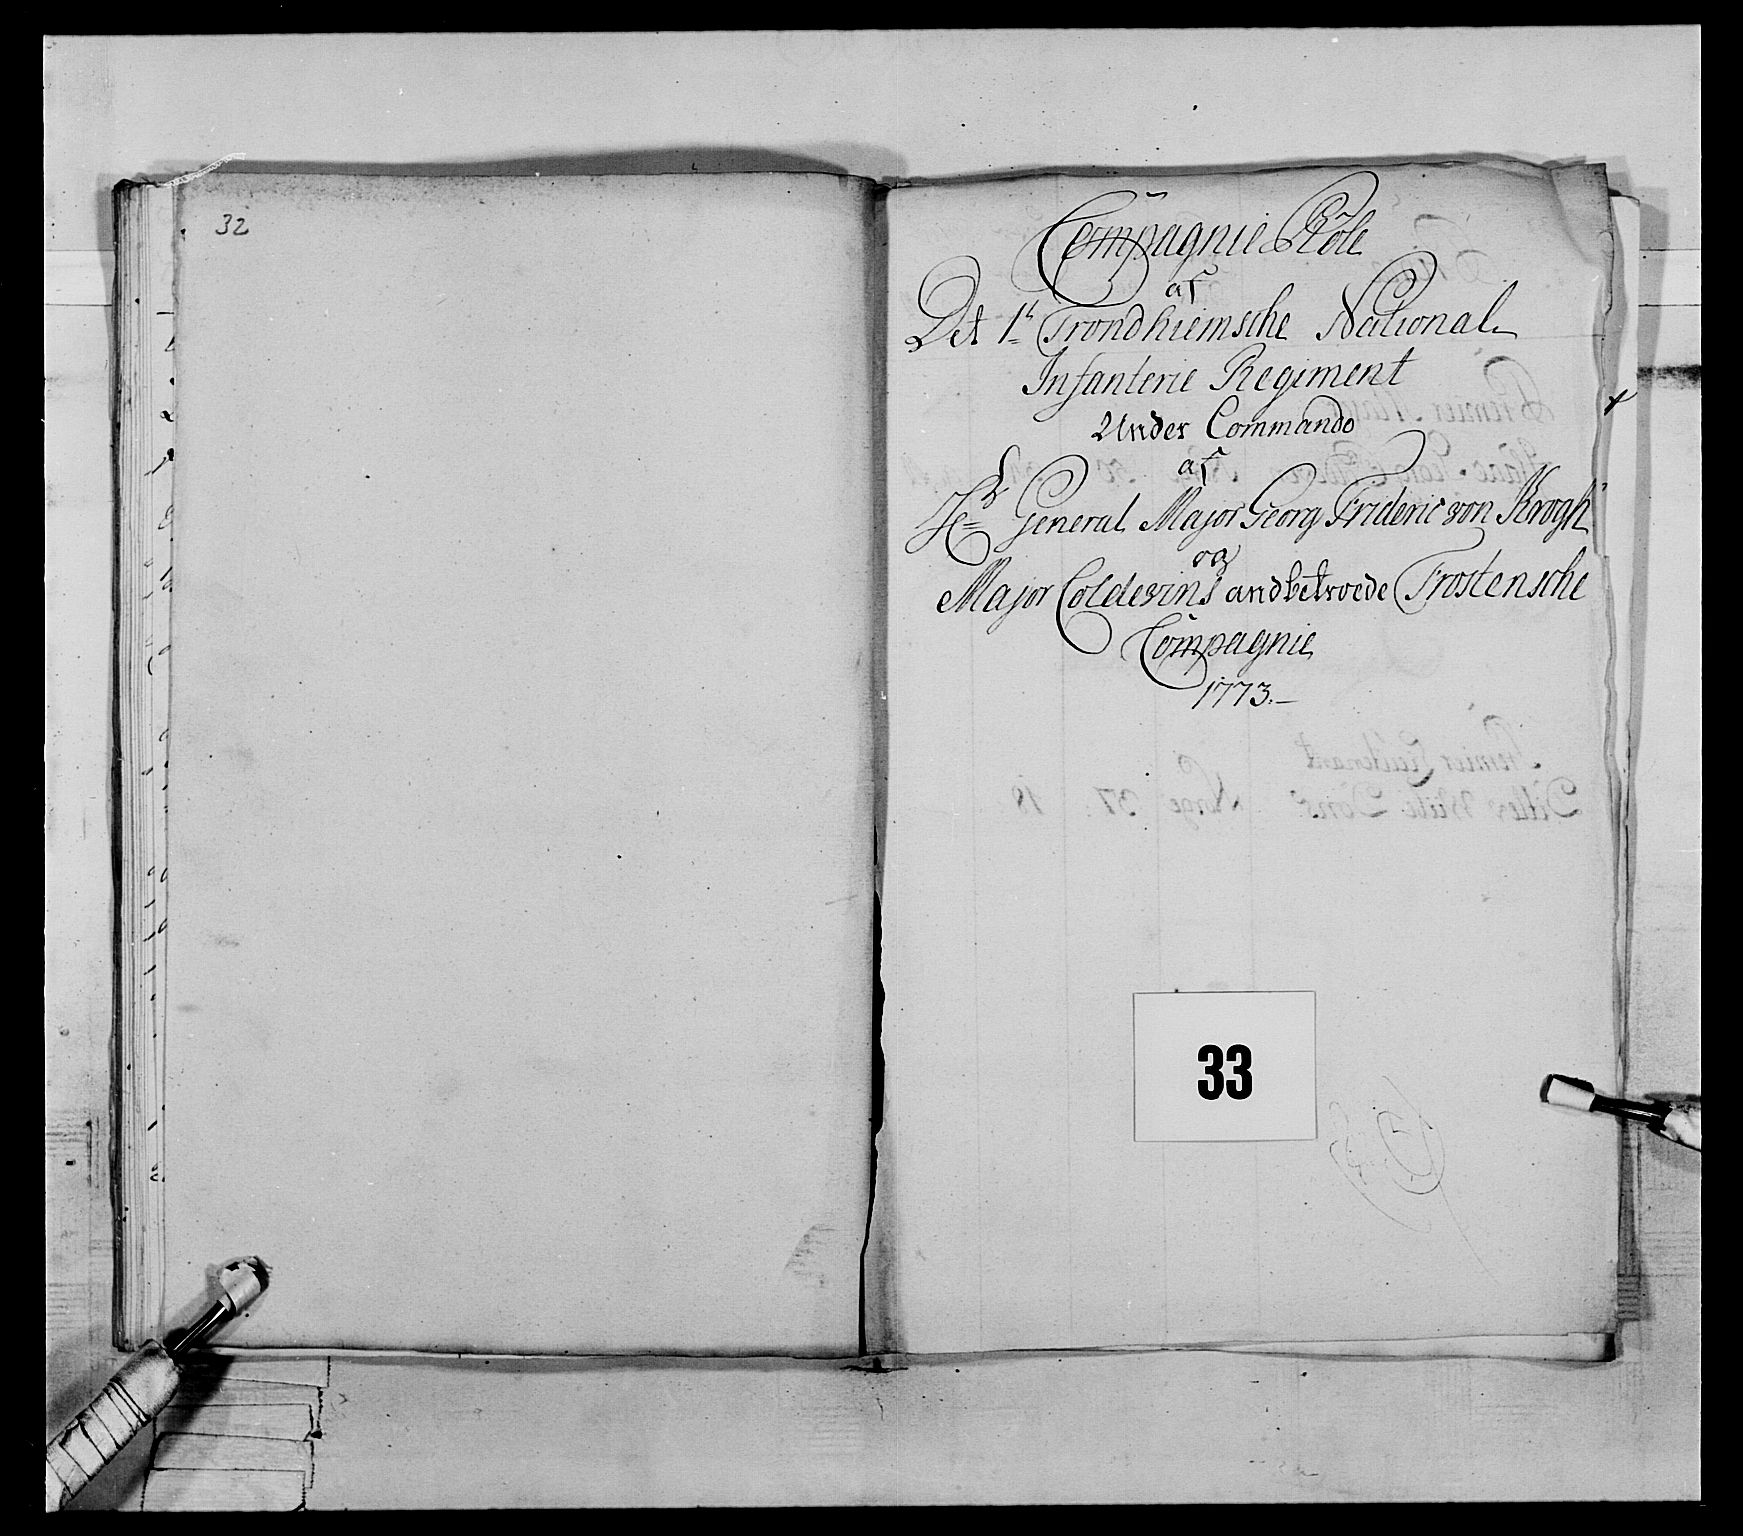 32
Compagnie Role
af
Det 1t Trondhiemsche National
Infanterie Regiment
Under Commando
af
Hr General Major Georg Frideric von Krogh
og
Major Coldevins andbetroede Frostensche
Compagnie
1773.
33